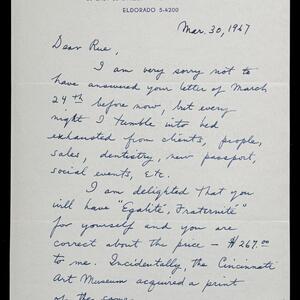 ELDORADO 5-4200
Mar. 30, 1967
Dear Rue,
I am very sorry not to
have answered your letter of March
24th before now, but every
night I tumble into bed
exhausted from clients, people,
sales, dentistry, new passport,
social events, etc.
I am delighted that you
will have "Egalité, Fraternité"
for yourself and you are
correct about the price – $267.00
to me. Incidentally, the Cincinnati
Art Museum acquired a print
of the same